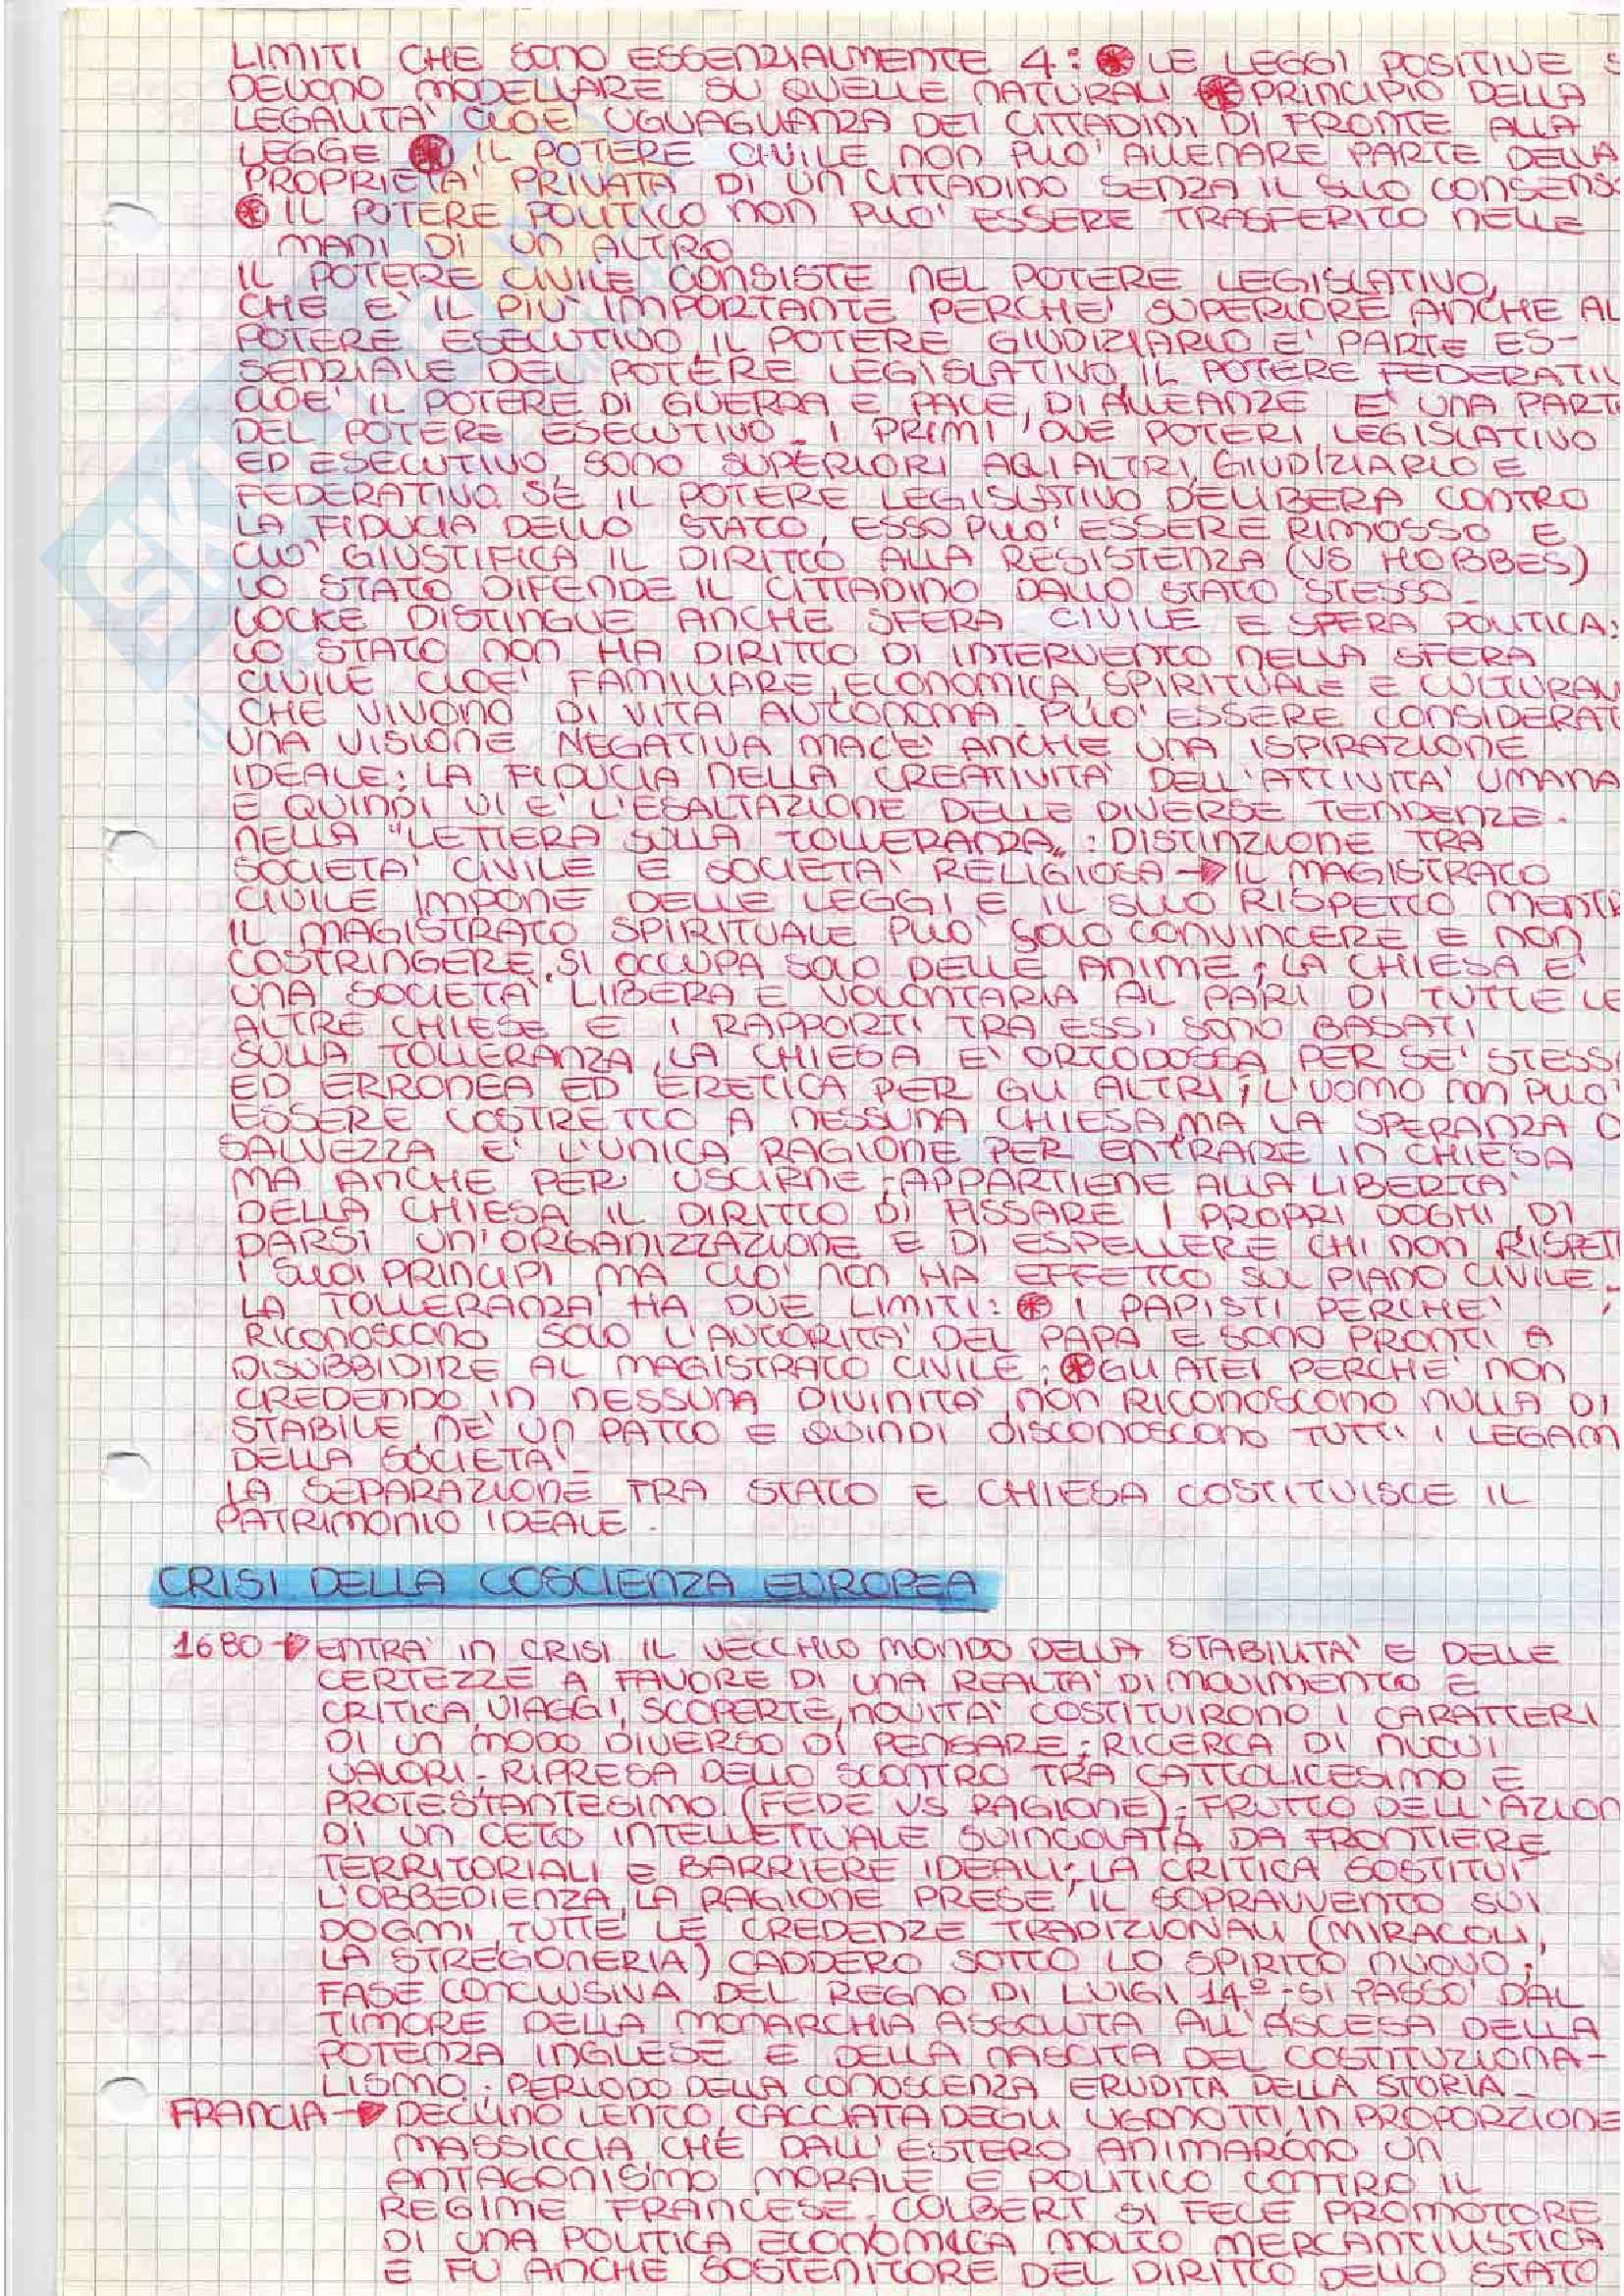 LIMITI CHE SONO ESSENZIALMENTE 4: ⊛ LE LEGGI POSITIVE S
DEVONO MODELLARE SU QUELLE NATURALI ⊛ PRINCIPIO DELLA
LEGALITA' CIOE' UGUAGLIANZA DEI CITTADINI DI FRONTE ALLA
LEGGE ⊛ IL POTERE CIVILE NON PUO' ALIENARE PARTE DELLA
PROPRIETA' PRIVATA DI UN CITTADINO SENZA IL SUO CONSENS
⊛ IL POTERE POLITICO NON PUO' ESSERE TRASFERITO NELLE
MANI DI UN ALTRO
IL POTERE CIVILE CONSISTE NEL POTERE LEGISLATIVO,
CHE E' IL PIU' IMPORTANTE PERCHE' SUPERIORE ANCHE AL
POTERE ESECUTIVO, IL POTERE GIUDIZIARIO E' PARTE ES-
SENZIALE DEL POTERE LEGISLATIVO, IL POTERE FEDERATIV
CIOE' IL POTERE DI GUERRA E PACE, DI ALLEANZE E' UNA PART
DEL POTERE ESECUTIVO. I PRIMI DUE POTERI, LEGISLATIVO
ED ESECUTIVO, SONO SUPERIORI AGLI ALTRI, GIUDIZIARIO E
FEDERATIVO. SE IL POTERE LEGISLATIVO DELIBERA CONTRO
LA FIDUCIA DELLO STATO, ESSO PUO' ESSERE RIMOSSO E
CIO' GIUSTIFICA IL DIRITTO ALLA RESISTENZA (VS HOBBES)
LO STATO DIFENDE IL CITTADINO DALLO STATO STESSO.
LOCKE DISTINGUE ANCHE SFERA CIVILE E SFERA POLITICA:
LO STATO NON HA DIRITTO DI INTERVENTO NELLA SFERA
CIVILE CIOE' FAMILIARE, ECONOMICA, SPIRITUALE E CULTURAL
CHE VIVONO DI VITA AUTONOMA. PUO' ESSERE CONSIDERAT
UNA VISIONE NEGATIVA MA C'E' ANCHE UNA ISPIRAZIONE
IDEALE: LA FIDUCIA NELLA CREATIVITA' DELL'ATTIVITA' UMANA
E QUINDI VI E' L'ESALTAZIONE DELLE DIVERSE TENDENZE.
NELLA "LETTERA SULLA TOLLERANZA": DISTINZIONE TRA
SOCIETA' CIVILE E SOCIETA' RELIGIOSA → IL MAGISTRATO
CIVILE IMPONE DELLE LEGGI E IL SUO RISPETTO MENTR
IL MAGISTRATO SPIRITUALE PUO' SOLO CONVINCERE E NON
COSTRINGERE, SI OCCUPA SOLO DELLE ANIME; LA CHIESA E'
UNA SOCIETA' LIBERA E VOLONTARIA AL PARI DI TUTTE LE
ALTRE CHIESE E I RAPPORTI TRA ESSI SONO BASATI
SULLA TOLLERANZA, LA CHIESA E' ORTODOSSA PER SE' STESS
ED ERRONEA ED ERETICA PER GLI ALTRI; L'UOMO NON PUO'
ESSERE COSTRETTO A NESSUNA CHIESA, MA LA SPERANZA D
SALVEZZA E' L'UNICA RAGIONE PER ENTRARE IN CHIESA
MA ANCHE PER USCIRNE; APPARTIENE ALLA LIBERTA'
DELLA CHIESA IL DIRITTO DI FISSARE I PROPRI DOGMI, DI
DARSI UN'ORGANIZZAZIONE E DI ESPELLERE CHI NON RISPET
I SUOI PRINCIPI MA CIO' NON HA EFFETTO SUL PIANO CIVILE.
LA TOLLERANZA HA DUE LIMITI: ⊛ I PAPISTI PERCHE'
RICONOSCONO SOLO L'AUTORITA' DEL PAPA E SONO PRONTI A
DISUBBIDIRE AL MAGISTRATO CIVILE; ⊛ GLI ATEI PERCHE' NON
CREDENDO IN NESSUNA DIVINITA', NON RICONOSCONO NULLA DI
STABILE NE' UN PATTO E QUINDI DISCONOSCONO TUTTI I LEGAM
DELLA SOCIETA'.
LA SEPARAZIONE TRA STATO E CHIESA COSTITUISCE IL
PATRIMONIO IDEALE.
CRISI DELLA COSCIENZA EUROPEA
1680 → ENTRA' IN CRISI IL VECCHIO MONDO DELLA STABILITA' E DELLE
CERTEZZE A FAVORE DI UNA REALTA' DI MOVIMENTO E
CRITICA, VIAGGI, SCOPERTE, NOVITA' COSTITUIRONO I CARATTERI
DI UN MODO DIVERSO DI PENSARE; RICERCA DI NUOVI
VALORI. RIPRESA DELLO SCONTRO TRA CATTOLICESIMO E
PROTESTANTESIMO (FEDE VS RAGIONE); FRUTTO DELL'AZION
DI UN CETO INTELLETTUALE SVINCOLATA DA FRONTIERE
TERRITORIALI E BARRIERE IDEALI; LA CRITICA SOSTITUI'
L'OBBEDIENZA, LA RAGIONE PRESE IL SOPRAVVENTO SUI
DOGMI, TUTTE LE CREDENZE TRADIZIONALI (MIRACOLI,
LA STREGONERIA) CADDERO SOTTO LO SPIRITO NUOVO;
FASE CONCLUSIVA DEL REGNO DI LUIGI 14º. SI PASSO' DAL
TIMORE DELLA MONARCHIA ASSOLUTA ALL'ASCESA DELLA
POTENZA INGLESE E DELLA NASCITA DEL COSTITUZIONA-
LISMO. PERIODO DELLA CONOSCENZA ERUDITA DELLA STORIA.
FRANCIA → DECLINO LENTO, CACCIATA DEGLI UGONOTTI, IN PROPORZIONE
MASSICCIA CHE DALL'ESTERO ANIMARONO UN
ANTAGONISMO MORALE E POLITICO CONTRO IL
REGIME FRANCESE. COLBERT SI FECE PROMOTORE
DI UNA POLITICA ECONOMICA MOLTO MERCANTILISTICA
E FU ANCHE SOSTENITORE DEL DIRITTO DELLO STATO